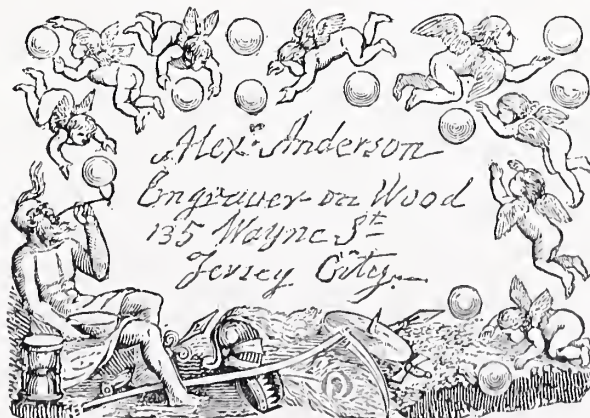 Alexr. Anderson
Engraver on Wood
135 Wayne St
Jersey City.